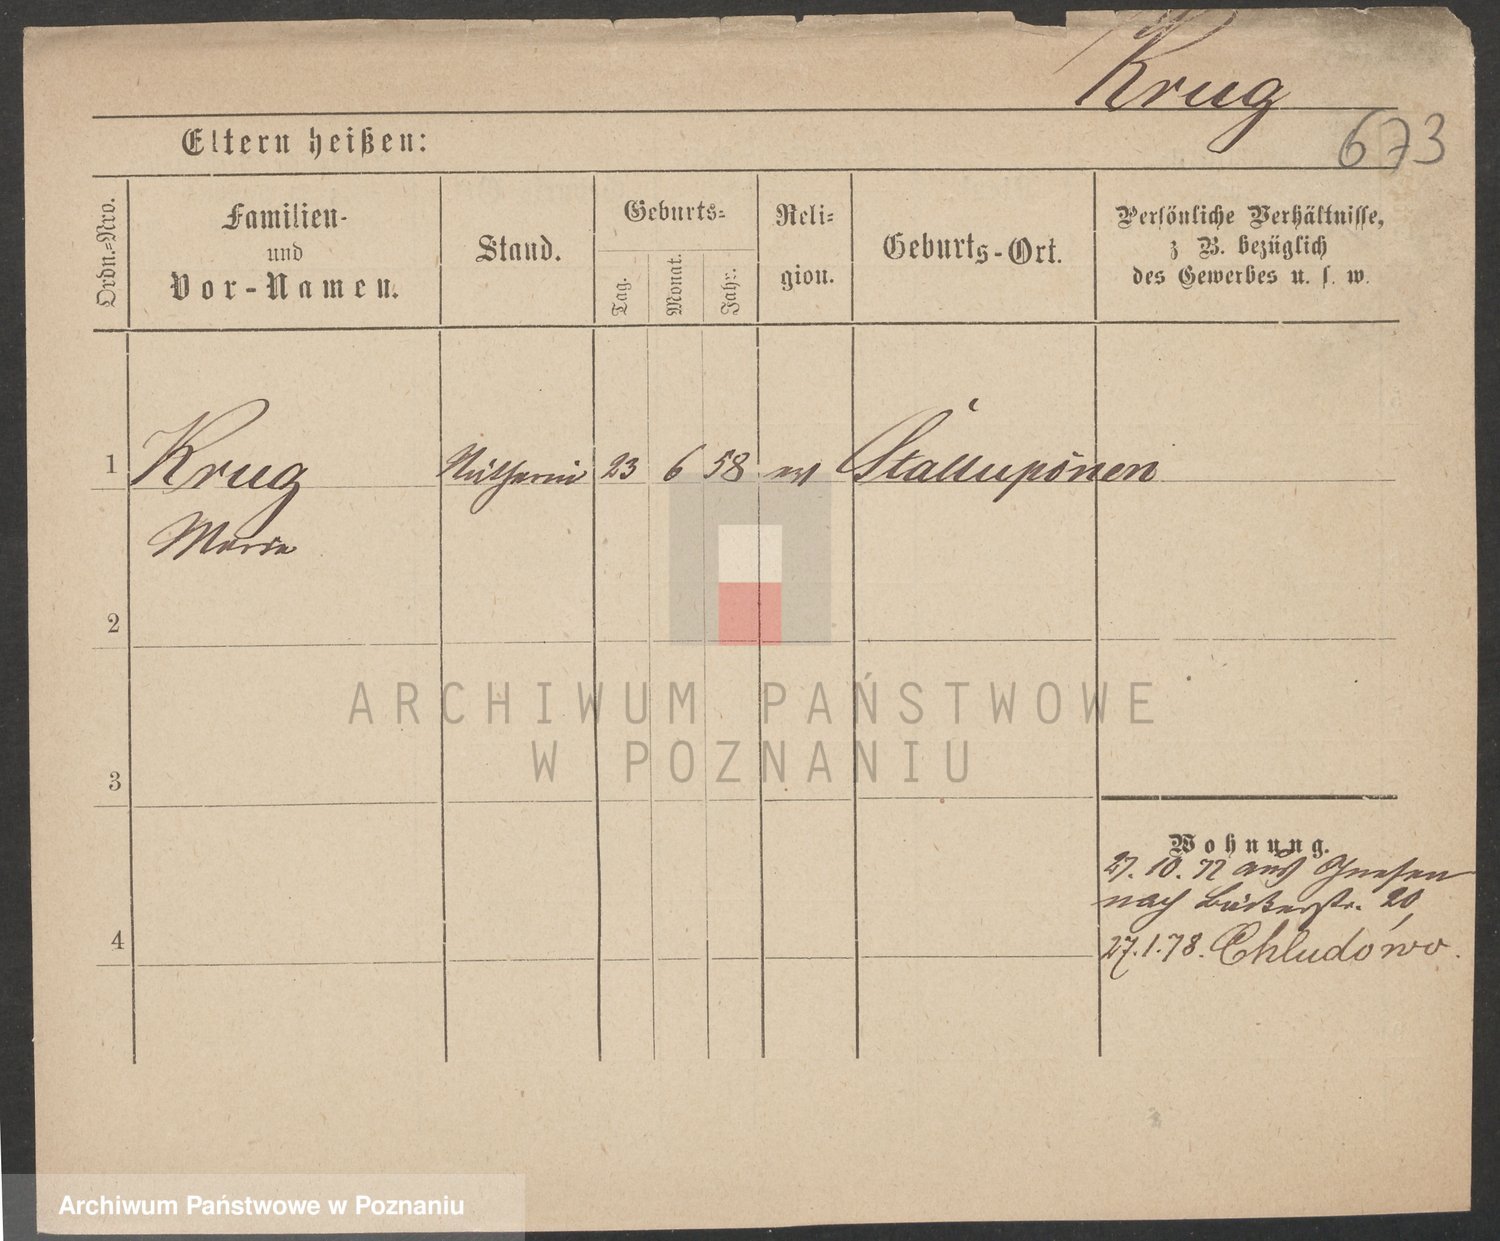 Krug
673
Eltern heißen:
Ordn.=Nro.
Familien-
und
Vor-Namen.
Stand.
Geburts=
Tag.
Monat.
Jahr.
Reli=
gion.
Geburts-Ort.
Persönliche Verhältnisse,
z B. bezüglich
des Gewerbes u. s. w.
1 Krug 23 6 58 ev Stallupönen
Marie
2
ARCHIWUM PAŃSTWOWE
W POZNANIU
3
Wohnung.
27. 10. 77 aus Gnesen
nach Bäckerstr. 20,
4
27.1.78. Chludowo.
Archiwum Państwowe w Poznaniu